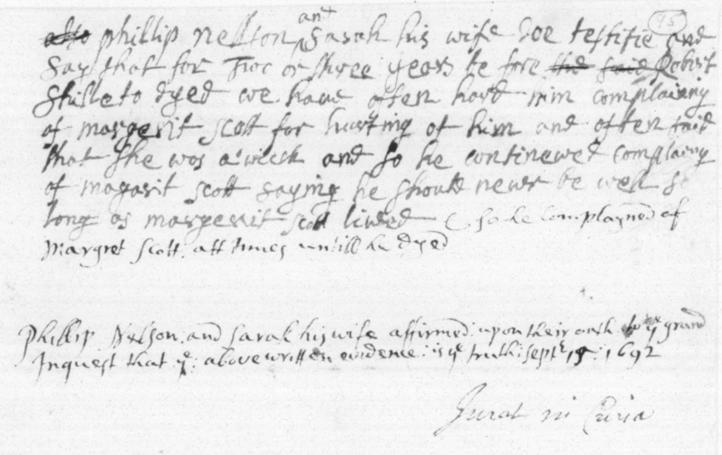 phillip nellson and Sarah his wife doe testifie and
say that for Two or three years be fore the said Robert
Shilleto dyed we haue often hard him complaieng
of margerit Scott for hurting of him and often said
that she was a wich and so he continewed complaieng
of magarit scott saying he should never be well so
long as margerit scott lived & so he Complayned of
Margret Scott: att times untill he dyed
Phillip Nelson and Sarah his wife affirmed: upon their oath to ye grand
Inquest that ye: above written evidence: is ye truth: Sept: 15: 1692
Jurat in Curia